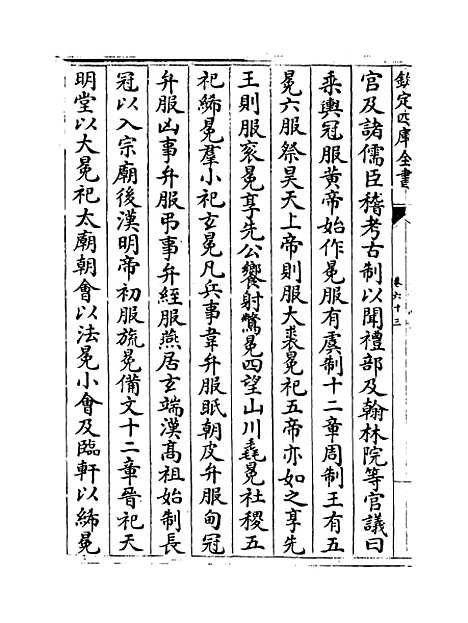 欽定四庫全書
卷六十三
官及諸儒臣稽考古制以聞禮部及翰林院等官議曰
乘輿冠服黃帝始作冕服有虞制十二章周制王有五
冕六服祭昊天上帝則服大裘冕祀五帝亦如之享先
王則服袞冕享先公饗射鷩冕四望山川毳冕社稷五
祀絺冕羣小祀玄冕凡兵事韋弁服眂朝皮弁服甸冠
弁服凶事弁服弔事弁絰服燕居玄端漢髙祖始制長
冠以入宗廟後漢明帝初服旒冕備文十二章晉祀天
明堂以大冕祀太廟朝會以法冕小會及臨軒以絺冕